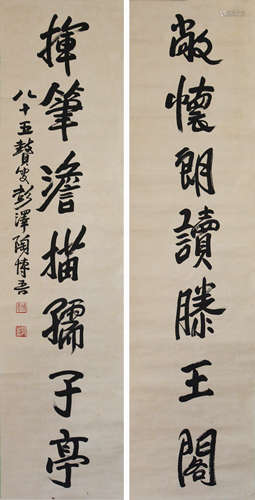 敞懷朗讀滕王閣
揮筆澹描孺子亭
八十五贅叟彭澤陶博吾